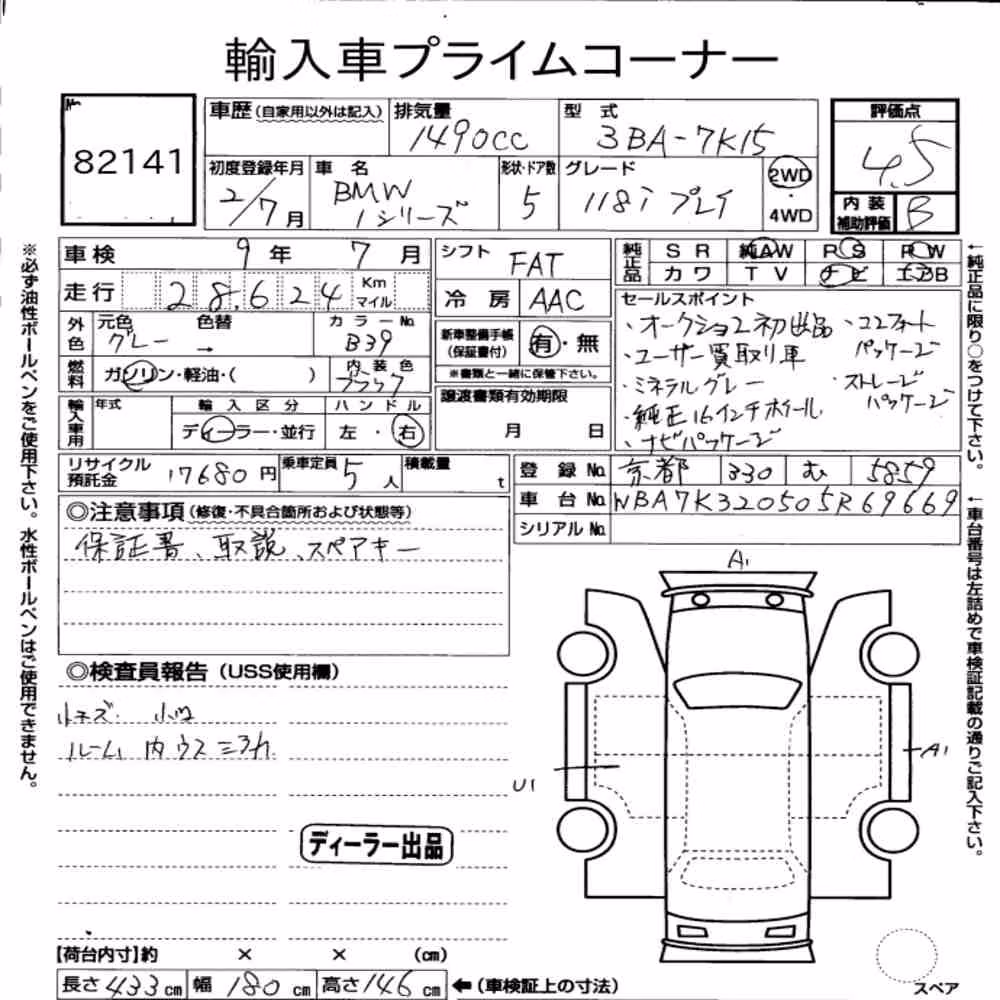 輸入車プライムコーナー
82141
車歴(自家用以外は記入) 排気量 1490cc 型式 3BA-7K15 評価点 4.5
初度登録年月 2/7月 車名 BMW 1シリーズ 形状・ドア数 5 グレード 118i プレイ 2WD・4WD 内装補助評価 B
車検 9年 7月 シフト FAT 純正品 SR 純AW PS PW
カワ TV ナビ エアB
走行 28,624 Km マイル 冷房 AAC セールスポイント
外色 元色 グレー 色替 → カラーNo. B39 新車整備手帳(保証書付) 有・無
※書類と一緒に保管下さい。
燃料 ガソリン・軽油・( ) 内装色 ブラック
譲渡書類有効期限 月 日
輸入車用 年式 輸入区分 ディーラー・並行 ハンドル 左・右
・オークション初出品 ・コンフォートパッケージ
・ユーザー買取り車
・ミネラルグレー ・ストレージパッケージ
・純正16インチホイール
・ナビパッケージ
リサイクル預託金 17680円 乗車定員 5人 積載量 t 登録No. 京都 330 む 5859
車台No. WBA7K320505R69669
シリアルNo.
◎注意事項(修復・不具合箇所および状態等)
保証書、取説、スペアキー
◎検査員報告(USS使用欄)
小キズ 小凹
ルーム内ウスヨゴレ
ディーラー出品
A1
U1
A1
【荷台内寸】約 × × (cm)
長さ 433cm 幅 180cm 高さ 146cm ←(車検証上の寸法)
スペア
※必ず油性ボールペンをご使用下さい。水性ボールペンはご使用できません。
←純正品に限り○をつけて下さい。
←車台番号は左詰めで車検証記載の通りご記入下さい。